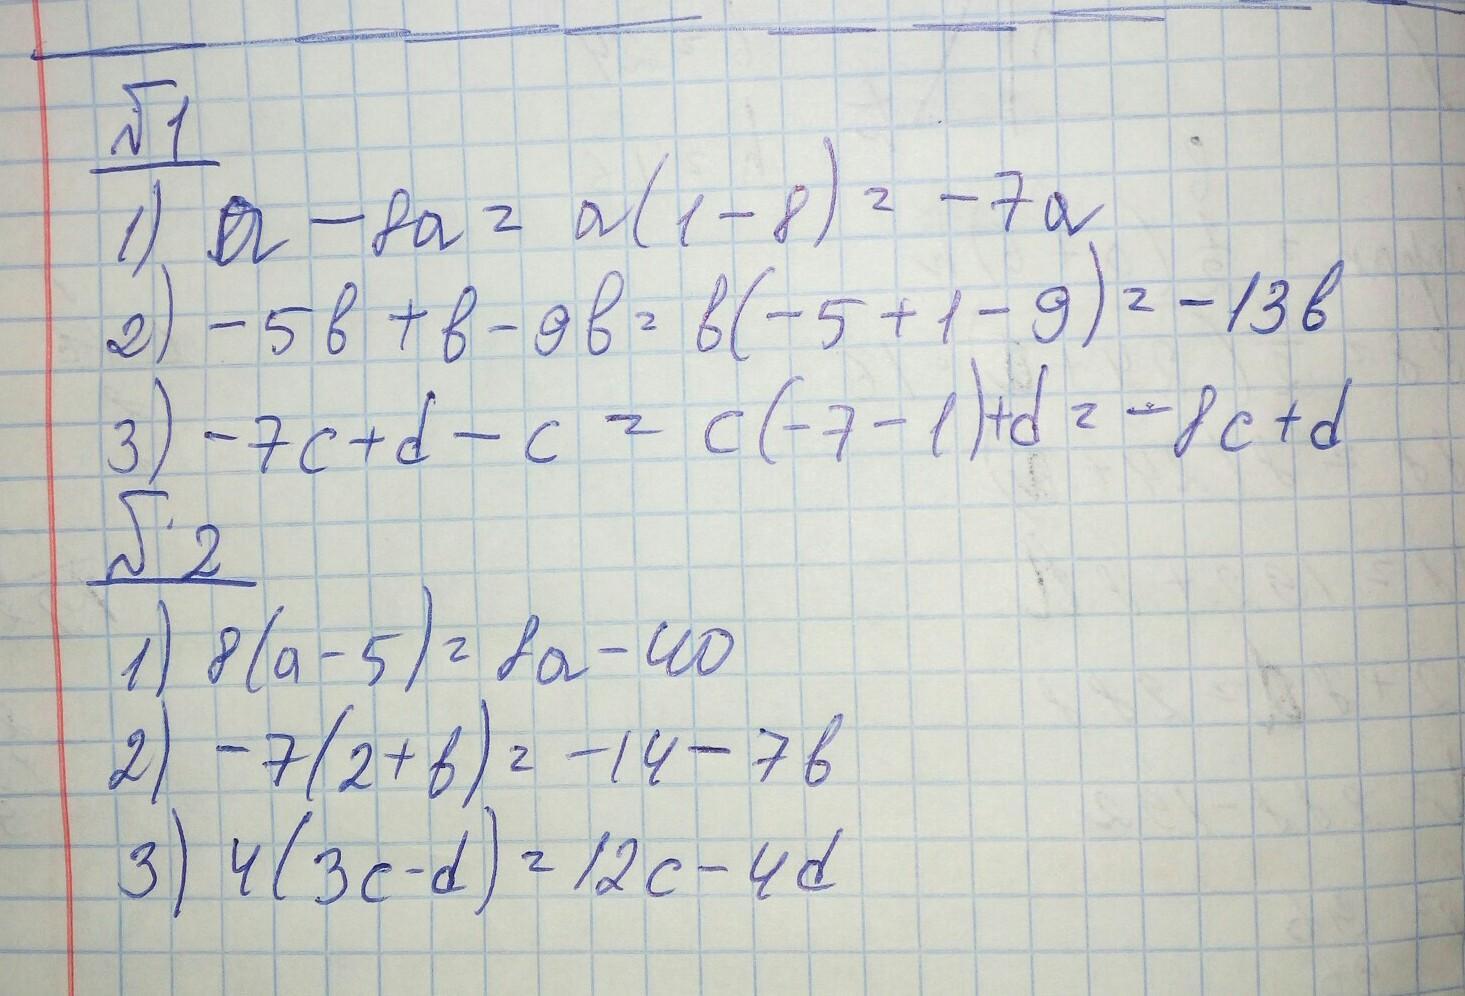 №1
1) a - 8a = a(1 - 8) = -7a
2) -5b + b - 9b = b(-5 + 1 - 9) = -13b
3) -7c + d - c = c(-7 - 1) + d = -8c + d
№ 2
1) 8(a - 5) = 8a - 40
2) -7(2 + b) = -14 - 7b
3) 4(3c - d) = 12c - 4d